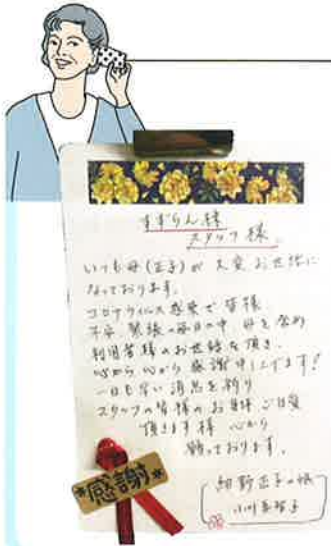 すずらん様
スタッフ様
いつも母(正子)が大変お世話に
なっております。
コロナウィルス感染で皆様
不安、緊張の毎日の中 母を含め
利用者様のお世話を頂き、
心から心から感謝申し上げます!
一日も早い消息を祈り
スタッフの皆様のお身体ご自愛
頂きます様 心から
願っております。
正子の娘
小川
*感謝*